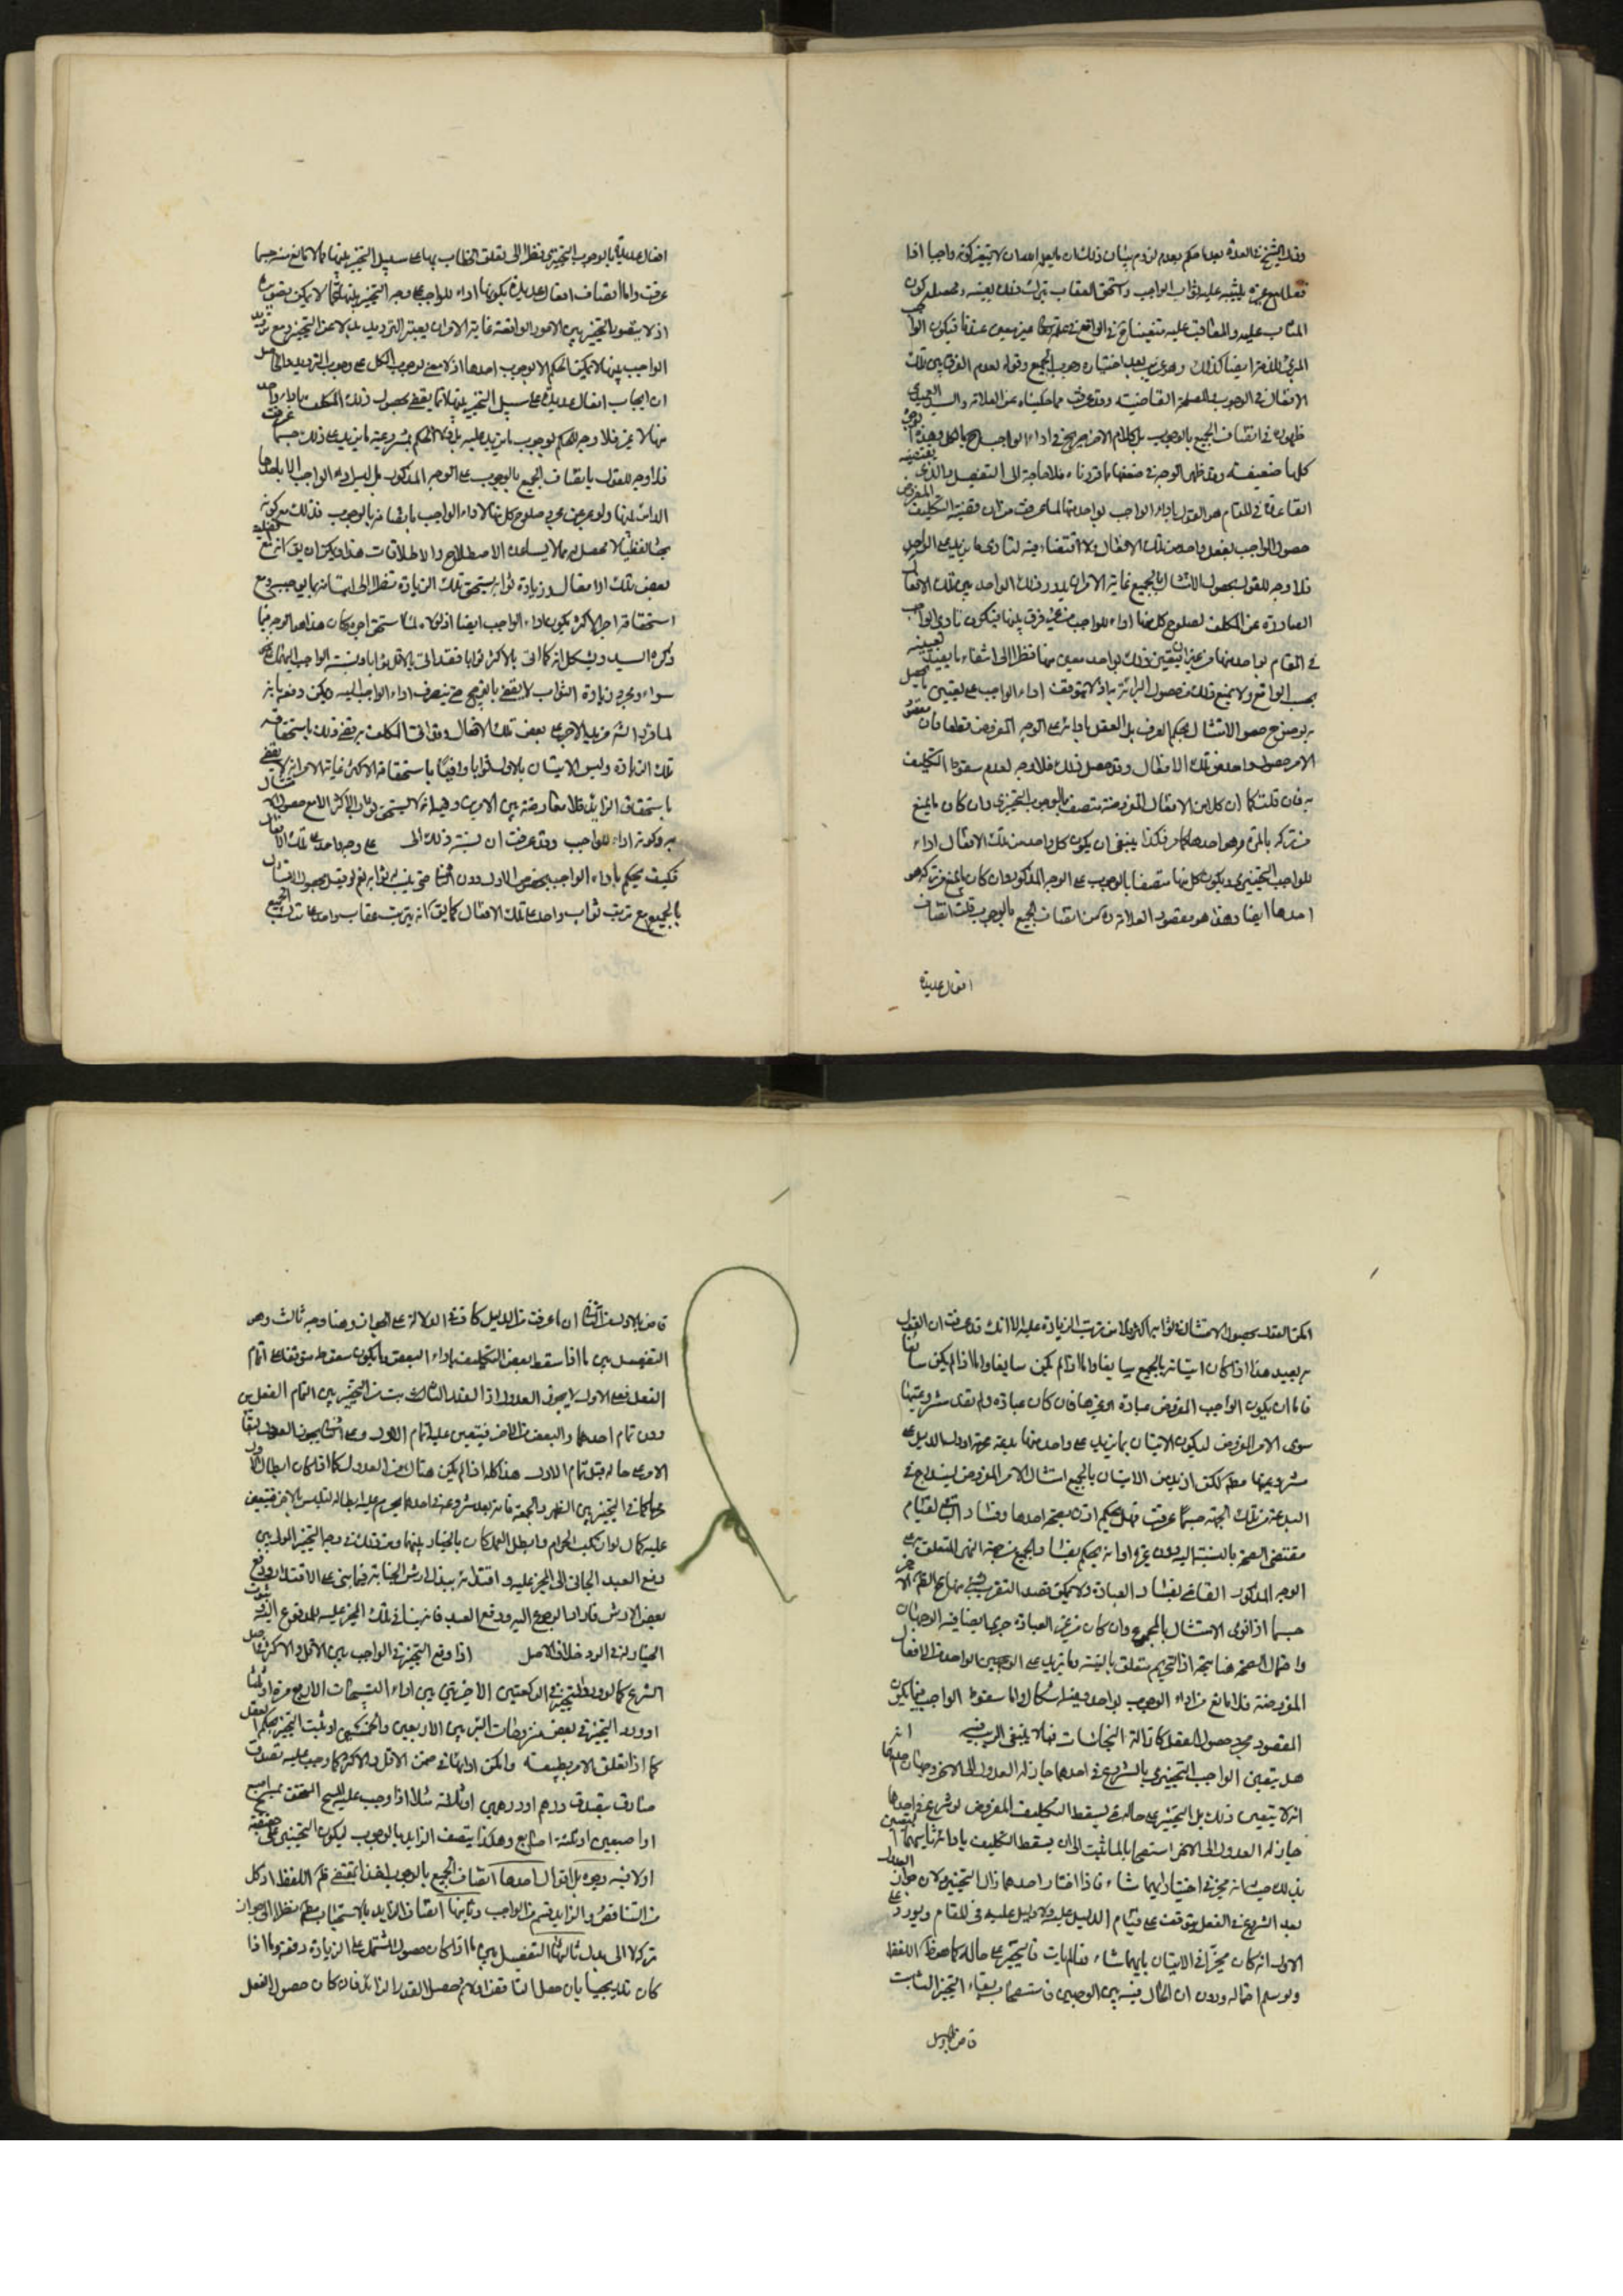 وقال الشيخ في العدة بعدما حكم بعدم لزوم بيان ذلك ان يعلم الله ان لا يتغير كونه واجبا اذا
فعل مع غيره فيثبه عليه ثواب الواجب ويستحق العقاب بترك ذلك بعينه ومحصله كون
المثاب عليه والمعاقب عليه متعينا في الواقع في علمه تعالى غير معين عندنا فيكون الواجب
المجزي ايضا كذلك بعد اختياره وجوب الجميع وقوله لعدم الفرق بين تلك
الافعال في الوجوب والمصلحة القاضية وقد عرفت مما حكيناه عن العلامة والسيد العميدي
ظهوره في اتصاف الجميع بالوجوب بل كلام الاخير صريح في اداء الواجب بالكل وهذه الوجوه
كلها ضعيفة وقد ظهر الوجه في ضعفها مما قررناه فلا حاجة الى التفصيل والذي يقتضيه
القاعدة في المقام هو القول باداء الواجب بواحد منها لما عرفت من ان قضية التكليف المفروض
حصول الواجب بفعل واحد من تلك الافعال ولا اقتضاء فيه لتادي ما يزيد على الواحد
فلا وجه للقول بحصول الامتثال بالجميع غاية الامر ان يدور ذلك الواحد بين تلك الافعال
الصادرة عن المكلف لصلوح كل منها اداء للواجب من غير فرق بينها فيكون تادي الواجب
في المقام بواحد منها من غير ان يتعين ذلك بواحد معين منها نظرا الى انتفاء ما يفيد تعيينه
بحسب الواقع ولا يمنع ذلك من حصول البرائة به اذ لا يتوقف اداء الواجب على تعيين ما يحصل
به بوضوح حصول الامتثال بحكم العرف بل العقل بادائه على الوجه المفروض قطعا فان مقصود
الامر حصول واحد من تلك الافعال وقد حصل ذلك فلا وجه لعدم سقوط التكليف
به فان قلت كما ان كلا من الافعال المفروضة متصف بالوجوب التخييري وان كان ما يمنع
من تركه بالمرة هو احدها كما مر فكذا ينبغي ان يكون كل واحد من تلك الافعال اداء
للواجب التخييري ويكون كل منها متصفا بالوجوب على الوجه المذكور وان كان ما يمنع من تركه هو
احدها ايضا وهذا هو مقصود العلامة ره من اتصاف الجميع بالوجوب قلت اتصاف
افعال عديدة
افعال عديدة بالوجوب التخييري نظرا الى تعلق الخطاب بها على سبيل التخيير بينها مما لا مانع منه حسبما
عرفت واما اتصاف افعال عديدة بكونها اداء للواجب على وجه التخيير بينها فمما لا يمكن تصويره
اذ لا يتصور التخيير بين الامور الواقعة غاية الامر ان يعتبر الترديد بدلا عن التخيير ومع ترديد
الواجب بينها لا يمكن الحكم الا بوجوب احدها اذ لا معنى لوجوب الكل على وجه الترديد والحاصل
ان ايجاب افعال عديدة على سبيل التخيير بينها انما يقضي بحصول ذلك المكلف باداء واحد
منها لا غير فلا وجه للحكم بوجوب ما يزيد عليه بل ولا للحكم بمشروعية ما يزيد على ذلك حسبما عرفت
فلا وجه للقول باتصاف الجميع بالوجوب على الوجه المذكور بل ليس اداء الواجب الا باحدها
الدائر بينها ولو عبر عن مجرد صلوح كل منها لاداء الواجب باتصافه بالوجوب فذلك مع كونه
بحثا لفظيا لا محصل له مما لا يساعده الاصطلاح والاطلاقات هذا ويمكن ان يق انه مع
بعض تلك الافعال وزيادة ثوابه يستحق تلك الزيادة نظرا الى اتيانه بما يوجبه ومع
استحقاقه اجر الاكثر يكون اداء الواجب ايضا اذ لولاه لما استحق اجره وكان هذا هو الوجه فيما
ذكره السيد ويشكل انه كما اتى بالاكثر ثوابا فقد اتى بالاقل ثوابا ونسبة الواجب اليهما على نحو
سواء ومجرد زيادة الثواب لا يقضي بالترجيح حتى ينصرف اداء الواجب اليه ويمكن دفعه بانه
لما قرر الشارع مزيد الاجر على بعض تلك الافعال وقد اتى المكلف به قضى ذلك باستحقاقه
تلك الزيادة وليس الاتيان بالاول ثوابا دافعا باستحقاقه الاكثر غاية الامر انه لا يقضي
باستحقاق الزايد فلا معارضة بين الامرين وفيه انه لا يستحق ثواب الاكثر الا مع حصول الامتثال
به وكونه اداء للواجب وقد عرفت ان نسبة ذلك الى على وجه واحد على تلك الافعال
فكيف يحكم باداء الواجب بخصوص الاول دون الثاني حتى يثبت له ثوابه نعم لو قيل بحصول الامتثال
بالجميع مع ترتب ثواب واحد على تلك الافعال كما يق انه يترتب عقاب واحد على ترك الجميع
امكن القول بحصول الامتثال فترتب الزيادة عليه الا انك قد عرفت ان القول
به بعيد هذا اذا كان اتيانه بالجميع سايغا واما اذا لم يكن سايغا
فاما ان يكون الواجب المفروض عبادة او غيرها فان كان عبادة ولم نقل بمشروعيتها
سوى الامر المفروض ليكون الاتيان بما يزيد على واحد منها بدعة محرمة لعدم الدليل على
مشروعيتها مطم لكن اذ يريد من الاتيان بالجميع امتثال الامر المفروض ليندرج في
البدعة من تلك الجهة حسبما عرفت فهل يحكم اذن بصحة احدها وفساد الباقي لقيام
مقتضى الصحة بالنسبة اليه دون غيره او انه يحكم بفساد الجميع من جهة النهي المتعلق به على
الوجه المذكور القاضي بفساد العبادة ولا يمكن قصد التقرب بشيء منها مع القصد
حسبما اذا نوى الامتثال بالمجموع وان كان من غير العبادة جرى ايضا فيه الوجهان
واحتمال الصحة هنا متجه اذ التحريم متعلق بالنية وما يزيد على الوجهين الواحد من الافعال
المفروضة فلا مانع من اداء الوجوب بواحد وفيه اشكال واما سقوط الواجب فيما يكون
المقصود مجرد حصول الفعل كازالة النجاسات فما لا ينبغي الريب فيه
هل يتعين الواجب التخييري بالشروع في احدهما او يجوز له العدول الى الاخر وجهان احدهما
انه لا يتعين ذلك بل التخيير على حاله حتى يسقط التكليف المفروض لو شرع في احدها
جاز له العدول الى الاخر استصحابا لما ثبت الى ان يسقط التكليف بادائه ثانيهما التعيين
بذلك حيث انه مخير في اختيار ايهما شاء فاذا اختار احدهما زال التخيير ولان جواز العدول
بعد الشروع في الفعل يتوقف على قيام الدليل عليه ولا دليل عليه في المقام ويورد على
الاول انه كان مخيرا في الاتيان بايهما شاء فما لم يات فالتخيير على حاله كما هو ظ اللفظ
ولو سلم احتماله ودون ان الحال فيه بين الوجهين فاستصحاب بقاء التخيير الثابت
قاض بالاول
قاض بالاول وعلى الثاني ان ما عرفت من الدليل كاف في الدلالة على الجواز وهنا وجه ثالث وهو
التفصيل بين ما اذا سقط بعض التكليف باداء البعض وما يكون سقوطه متوقفا على اتمام
الفعل فعلى الاول لا يجوز العدول اذ القدر الثابت من التخيير بين اتمام الفعلين
دون تمام احدهما والبعض من الاخر فيتعين عليه اتمام الاول وعلى الثاني يجوز العدول لبقاء
الامر على حاله قبل تمام الاول هذا كله اذا لم يكن هناك مانع من العدول كما اذا كان ابطال الاول
محرما كما في التخيير بين الظهر والجمعة فانه بعد شروعه في احدهما يحرم عليه ابطاله لتلبس بالاخر فيتعين
عليه اكماله لو ارتكب الحرام وابطل العمل كان بالخيار بينهما ومن ذلك في وجه التخيير الوارد بين
دفع العبد الجاني الى المجني عليه وافتدائه ببذل ارش الجناية فيما بنى على الافتداء ودفع
بعض الارش فاراد الرجوع اليه ودفع العبد فانه بناء في تلك المجني عليه المدفوع اليه ثبوت
الخيار له في الرد خلاف الاصل اذا وقع التخيير في الواجب بين الاقل والاكثر في اصل
الشرع كما لو ورد التخيير في الركعتين الاخيرتين بين اداء التسبيحات الاربع مرة او ثلثا
او ورد التخيير في بعض منزوحات البئر بين الاربعين والخمسين او ثبت التخيير بحكم العقل
كما اذا تعلق الامر بطبيعة وامكن ادائها في ضمن الاقل والاكثر كما وجب عليه تصدق
صادق بتصدق درهم او درهمين او ثلاثة مثلا اذا وجب عليه المسح المتحقق بمسح اصبع
او اصبعين او ثلثة اصابع وهكذا يتصف الزايد بالوجوب ليكون التخيير على حقيقته
او لا فيه وجوه بل اقوال احدها اتصاف الجميع بالوجوب اخذا بمقتضى ظم اللفظ اذ كل
من الناقص والزايد قسم من الواجب وثانيها اتصاف الزايد بالاستحباب مطم نظرا الى جواز
تركه لا الى بدل ثالثها التفصيل بين ما اذا كان حصول المشتمل على الزيادة دفعة وما اذا
كان تدريجيا بان حصل الناقص اولا ثم حصل القدر الزائد فان كان حصول الفعل